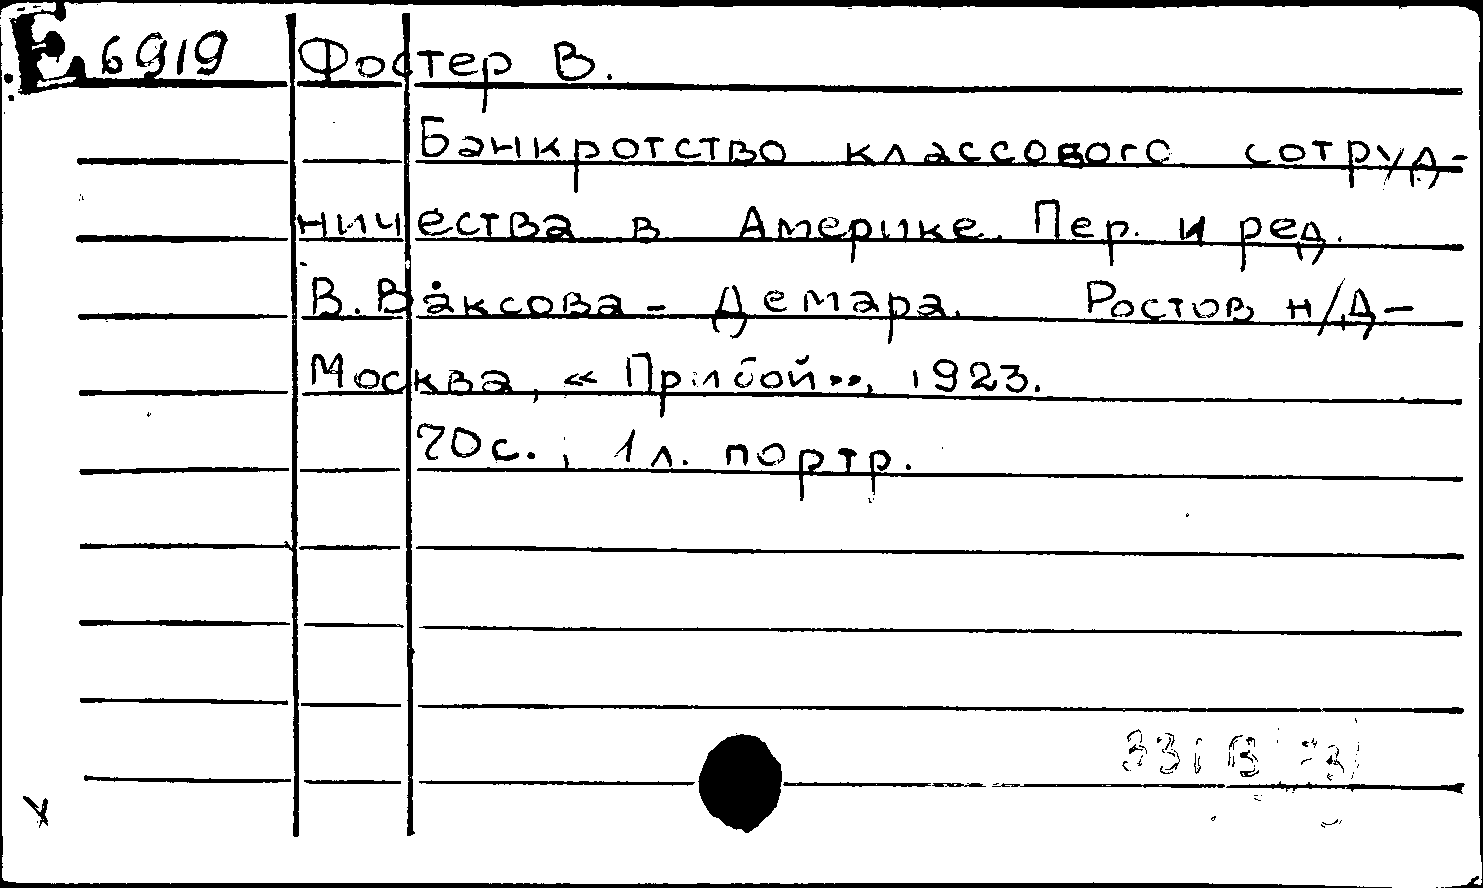 E 6919 Фостер В.
Банкротство классового сотруд-
ничества в Америке. Пер. и ред.
В. Ваксова-Демара. Ростов н/Д-
Москва, «Прибой», 1923.
70с., 1 л. портр.